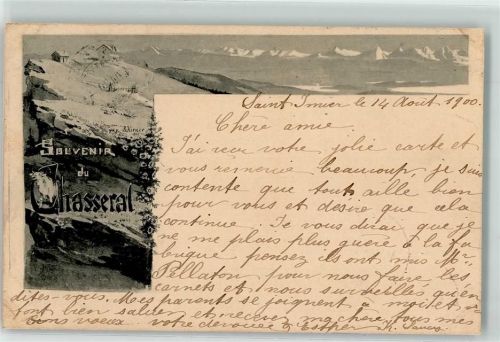 Souvenir
du
Chasseral
Saint Imier le 14 Août 1900.
Chère amie.
J'ai reçu votre jolie carte et
vous remercie beaucoup, je suis
contente que tout aille bien
pour vous et désire que cela
continue. Je vous dirai que je
ne me plais plus guère à la fa
brique pensez ils ont mis Mr.
Pellaton pour nous faire les
carnets et nous surveiller qu'en
dites-vous. Mes parents se joignent à moi et
font bien saluer et recevez ma chère tous mes
bons voeux votre dévouée Esther